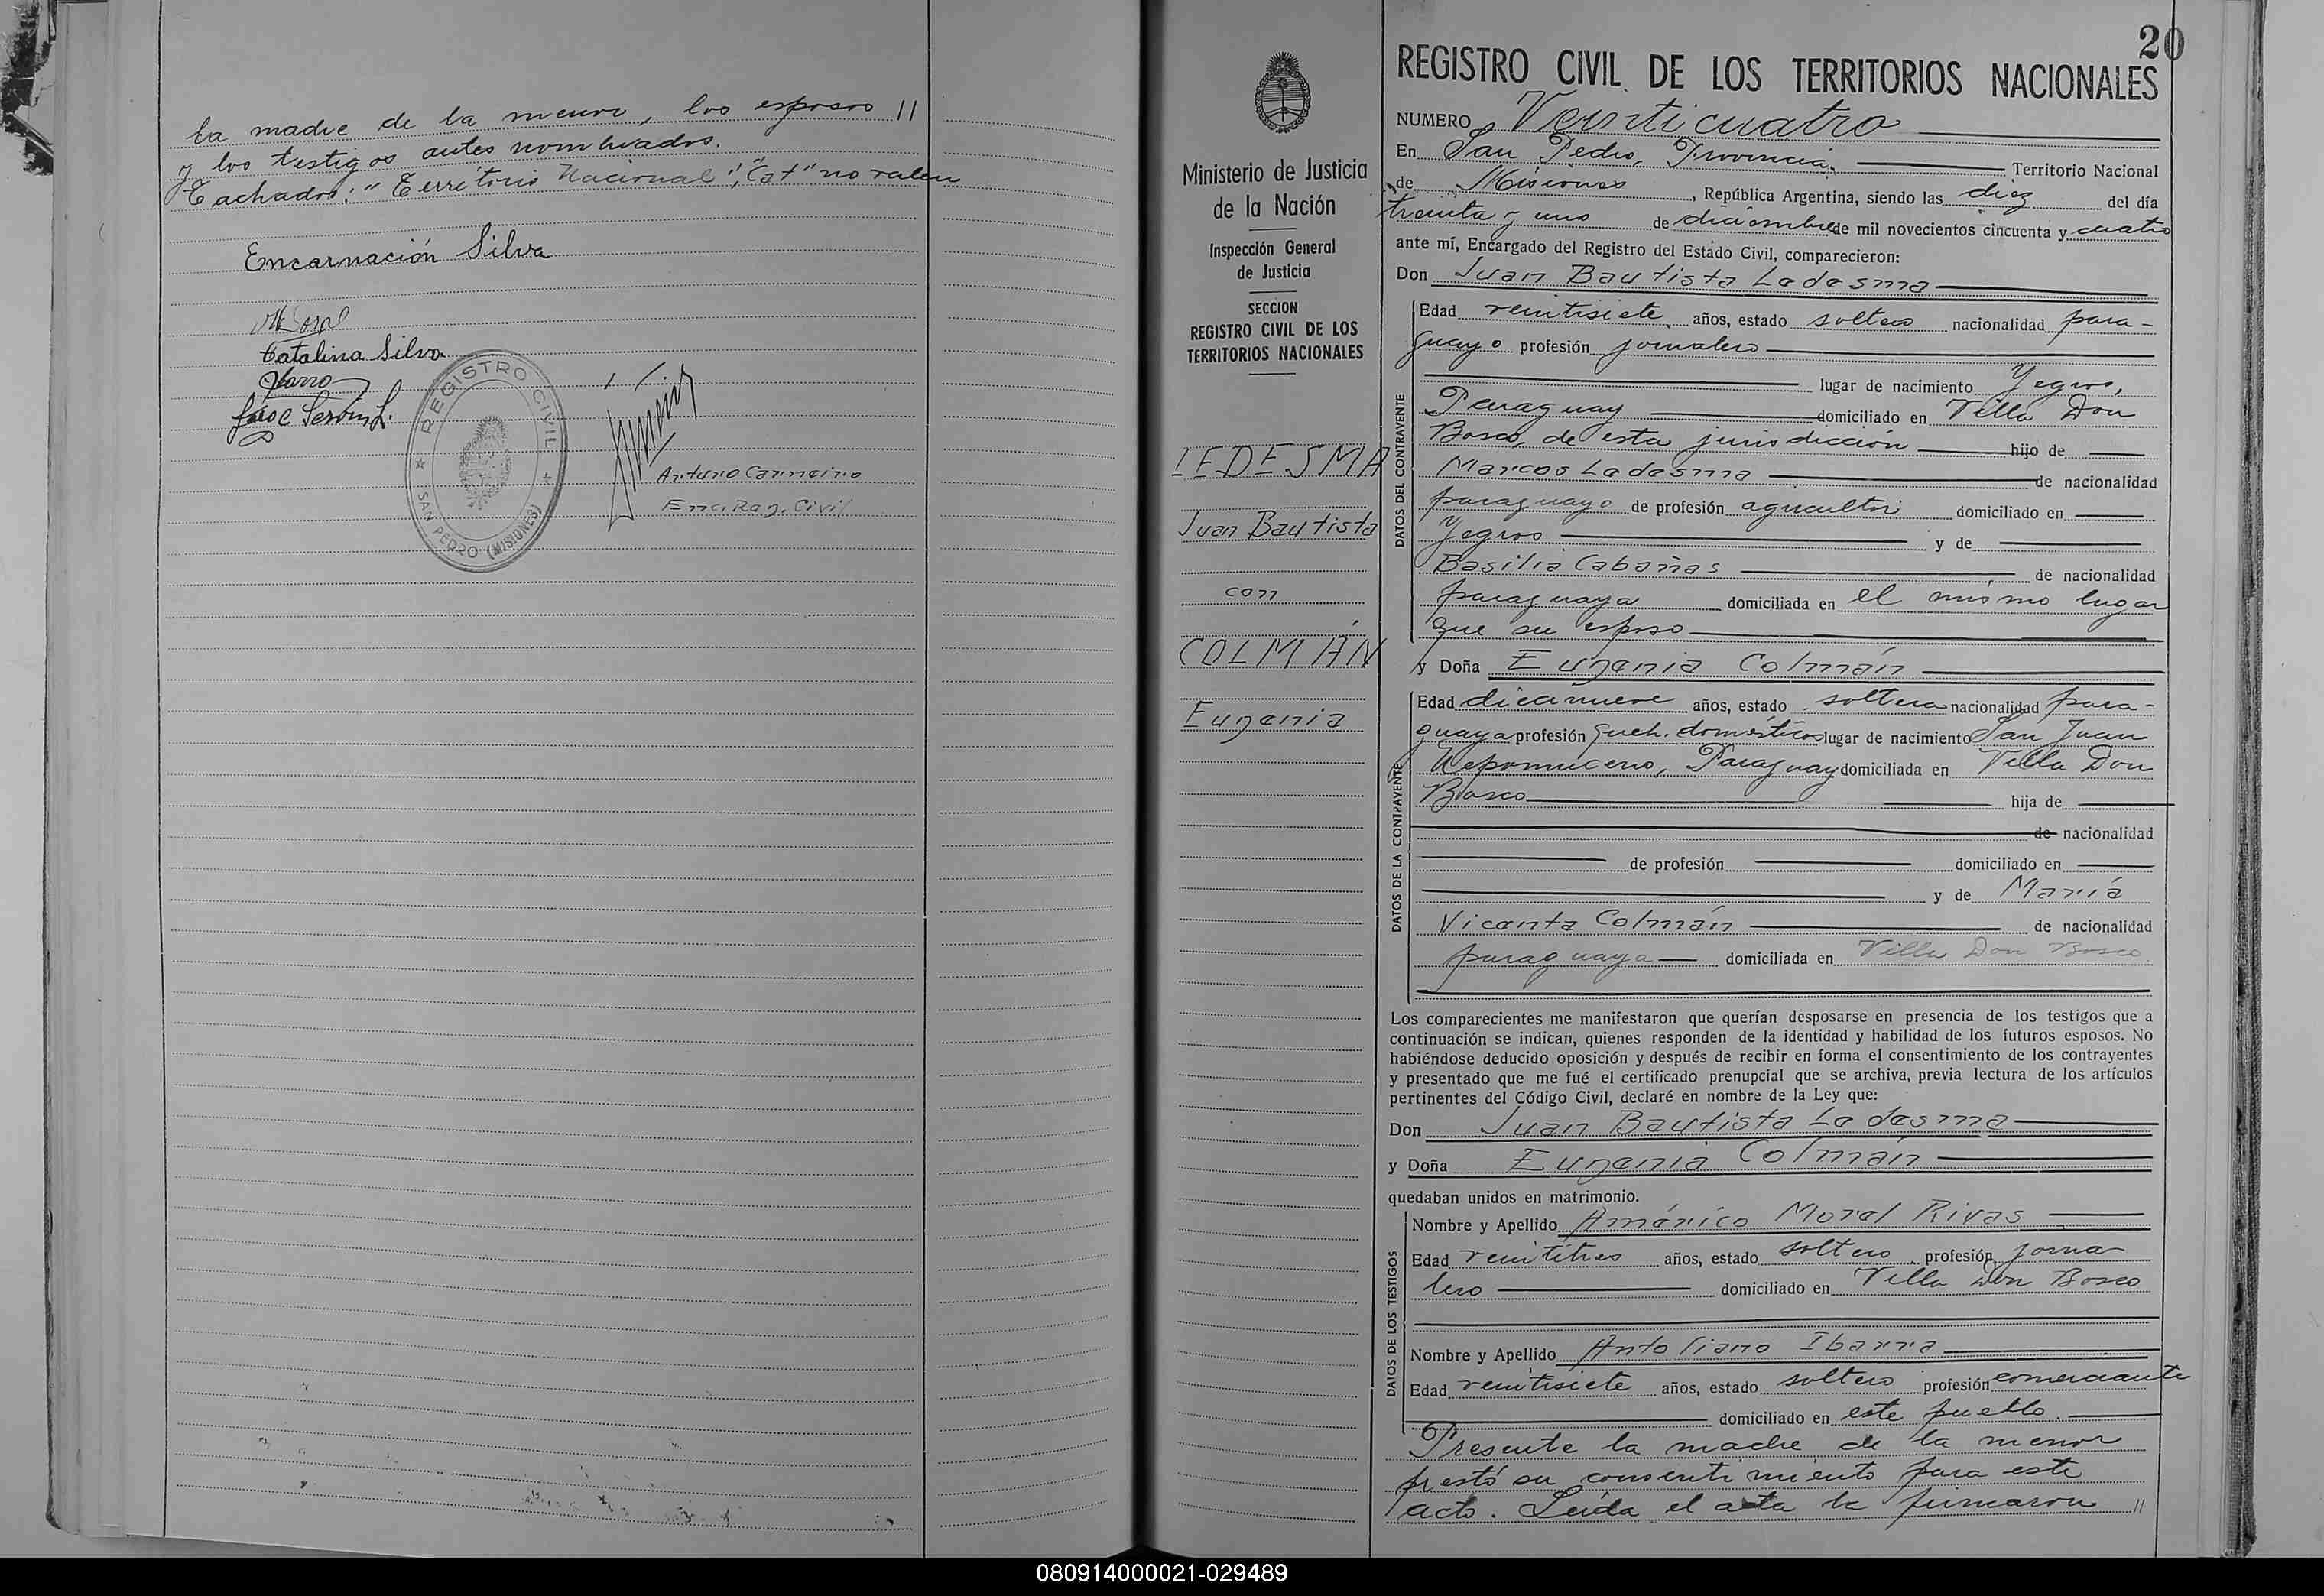 la madre de la menor, los esposos //
y los testigos antes nombrados.
Tachados: "Territorio Nacional", "Cat" no valen
Encarnación Silva
Catalina Silva
REGISTRO CIVIL
SAN PEDRO (MISIONES)
Arturo Carneiro
Enc. Reg. Civil
20
Ministerio de Justicia
de la Nación
Inspección General
de Justicia
SECCION
REGISTRO CIVIL DE LOS
TERRITORIOS NACIONALES
LEDESMA
Juan Bautista
con
COLMÁN
Eugenia
REGISTRO CIVIL DE LOS TERRITORIOS NACIONALES
NUMERO Veinticuatro
En San Pedro, Provincia, Territorio Nacional
de Misiones, República Argentina, siendo las diez del día
treinta y uno de diciembre de mil novecientos cincuenta y cuatro
ante mí, Encargado del Registro del Estado Civil, comparecieron:
Don Juan Bautista Ledesma
DATOS DEL CONTRAYENTE
Edad veintisiete años, estado soltero nacionalidad para-
guayo profesión jornalero
lugar de nacimiento Yegros,
Paraguay domiciliado en Villa Don
Bosco, de esta jurisdicción hijo de
Marcos Ledesma de nacionalidad
paraguayo de profesión agricultor domiciliado en
Yegros y de
Basilia Cabañas de nacionalidad
paraguaya domiciliada en el mismo lugar
que su esposo
y Doña Eugenia Colmán
DATOS DE LA CONTRAYENTE
Edad diecinueve años, estado soltera nacionalidad para-
guaya profesión queh. domésticos lugar de nacimiento San Juan
Nepomuceno, Paraguay domiciliada en Villa Don
Bosco hija de
de nacionalidad
de profesión domiciliado en
y de María
Vicenta Colmán de nacionalidad
paraguaya domiciliada en Villa Don Bosco
Los comparecientes me manifestaron que querían desposarse en presencia de los testigos que a
continuación se indican, quienes responden de la identidad y habilidad de los futuros esposos. No
habiéndose deducido oposición y después de recibir en forma el consentimiento de los contrayentes
y presentado que me fué el certificado prenupcial que se archiva, previa lectura de los artículos
pertinentes del Código Civil, declaré en nombre de la Ley que:
Don Juan Bautista Ledesma
y Doña Eugenia Colmán
quedaban unidos en matrimonio.
DATOS DE LOS TESTIGOS
Nombre y Apellido Américo Morel Rivas
Edad veintitres años, estado soltero profesión jorna
lero domiciliado en Villa Don Bosco
Nombre y Apellido Antoliano Ibarra
Edad veintisiete años, estado soltero profesión comerciante
domiciliado en este pueblo.
Presente la madre de la menor
prestó su consentimiento para este
acto. Leída el acta la firmaron //
080914000021-029489